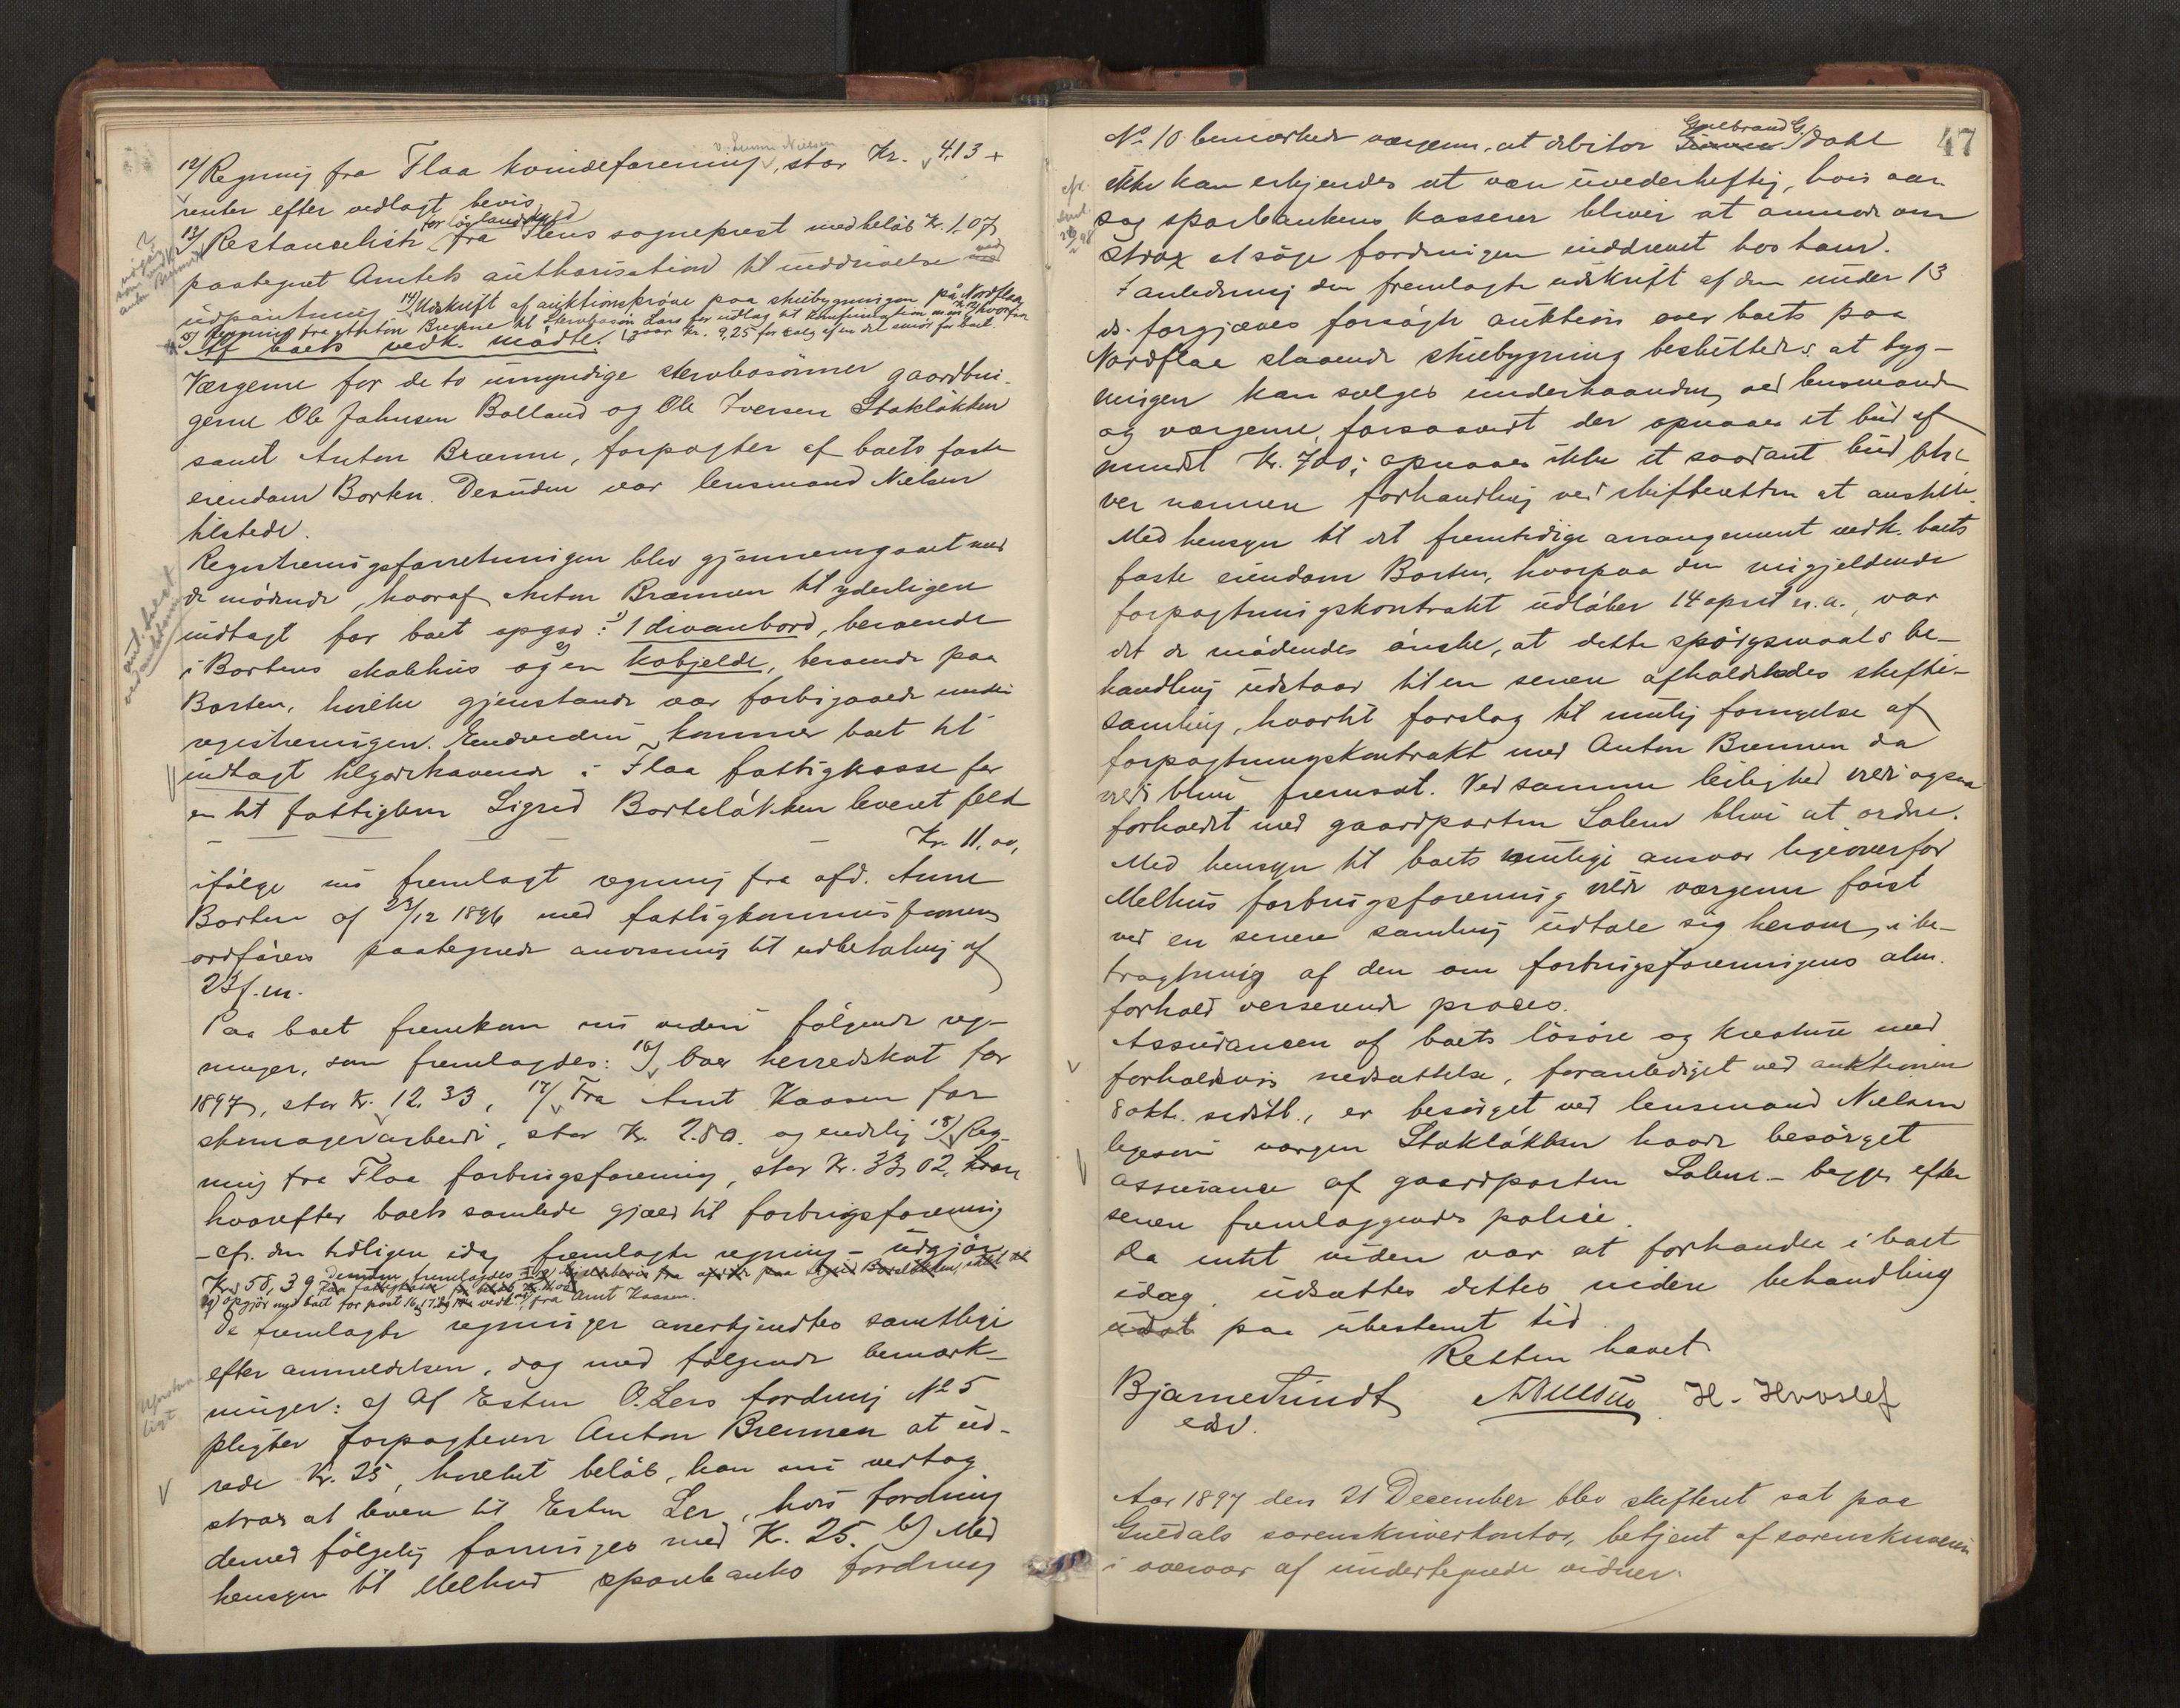 v. Lenm. Nielsen
12/ Regning fra Flaa kvindeforening, stor Kr. 4,13 +
renter efter vedlagt bevis
for löglandsbygd
13/ Restanceliste fra Flens sogneprest med beløb Kr. 1,07
paategnet Amtets authorisation til inddrivelse ved
udpantning 14/ Udskrift af auktionsprøve paa stuebygningen på Nordflaa
15/ Regning fra Anton Brenne til Stervbosøn Lars for udlag til konfirmation m.m. hvorfra
gaar Kr. 9,25 for salg af en del smör for boet.
Af boets vedk. mødte:
Værgerne for de to umyndige stervbosønner gaardbru-
gerne Ole Johnsen Bolland og Ole Iversen Stokløkken
samt Anton Brænne, forpagter af boets faste
eiendom Borten. Desuden var lensmand Nielsen
tilstede.
Registreringsforretningen blev gjennemgaaet med
de mødende, hvoraf Anton Brænnen til yderligere
indtægt for boet opgav: 1) 1 divanbord, beroende
i Bortens stabbur og 2) en kobjelde, beroende paa
Borten, hvilke gjenstande var forbigaaede under
registreringen. Endvidere kommer boet til
indtægt tilgodehavende i Flaa fattigkasse for
en til fattiglem Sigrid Borteløkken leveret feld
Kr. 11,00,
ifølge nu fremlagt regning fra afd. Anne
Borten af 23/12 1896 med fattigkommissionens
ordførers paategnede anvisning til udbetaling af
23 f.m.
Paa boet fremkom nu videre følgende reg-
ninger, som fremlagdes: 16/ over herredskat for
1897, stor Kr. 12,33, 17/ Fra Arnt Kaasen for
skomagerarbeide, stor Kr. 2.80. og endelig 18/ Reg-
ning fra Flaa forbrugsforening, stor Kr. 33,02,
hvorefter boets samlede gjæld til forbrugsforening
- cfr. den tidligere idag fremlagte regning - udgjør
Kr. 58,39. Desuden fremlagdes
19) opgjör med boet for post 16, 17 og 18 vedk. fra Arnt Kaasen.
De fremlagte regninger anerkjendtes samtlige
efter anmeldelsen, dog med følgende bemærk-
ninger: a) Af Esten O. Lers fordring No 5
pligter forpagteren Anton Brennen at ud-
rede Kr. 25, hvilket beløb, han nu vedtog
strax at levere til Esten Ler, hvis fordring
dermed følgelig forringes med K. 25. b) Med
hensyn til Melhus sparebanks fordring
ant. bleet
ved auktionen
47
Gulbrand G.
No 10 bemærkede værgerne, at debitor Dahl
ikke kan erkjendes at være uvederheftig, hvis aar-
sag sparebankens kasserer bliver at anmode om
strax at søge fordringen inddrevet hos ham.
I anledning den fremlagte udskrift af den under 13
ds. forgjæves forsøgte auktion over boets paa
Nordflaa staaende stuebygning besluttedes at byg-
ningen kan sælges underhaanden ved lensmanden
og værgerne, forsaavidt der opnaaes et bud af
mindst Kr. 700; opnaaes ikke et saadant bud bli-
ver nærmere forhandling ved skifteretten at anstille.
Med hensyn til det fremtidige arrangement vedk. boets
faste eiendom Borten, hvorpaa den nugjeldende
forpagtningskontrakt udløber 14 april n.a., var
det de mødendes ønske, at dette spørgsmaals be-
handling udstaar til en senere afholdendes skifte-
samling, hvortil forslag til mulig fornyelse af
forpagtningskontrakt med Anton Brennen da
vilde blive fremsat. Ved samme leilighed vilde ogsaa
forholdet med gaardparten Solem blive at ordne.
Med hensyn til boets mulige ansvar ligeoverfor
Melhus forbrugsforening vilde værgerne først
ved en senere samling udtale sig herom, i be-
tragtning af den om forbrugsforeningens alm.
forhold verserende proces.
Assurancen af boets løsøre og kreature med
forholdsvis nedsættelse, foranlediget ved auktionen
8 okt. sidstl., er besørget ved lensmand Nielsen
ligesom værgen Stokløkken havde besørget
assurance af gaardparten Solem - begge efter
senere fremlæggendes police.
Da intet videre var at forhandle i boet
idag, udsattes dettes videre behandling
paa ubestemt tid.
Retten hævet
Bjarne Lindt
edsv.
H. Hvoslef
Aar 1897 den 21 December blev skifteret sat paa
Guldals sorenskriverkontor, betjent af sorenskriveren
i overvær af undertegnede vidner.